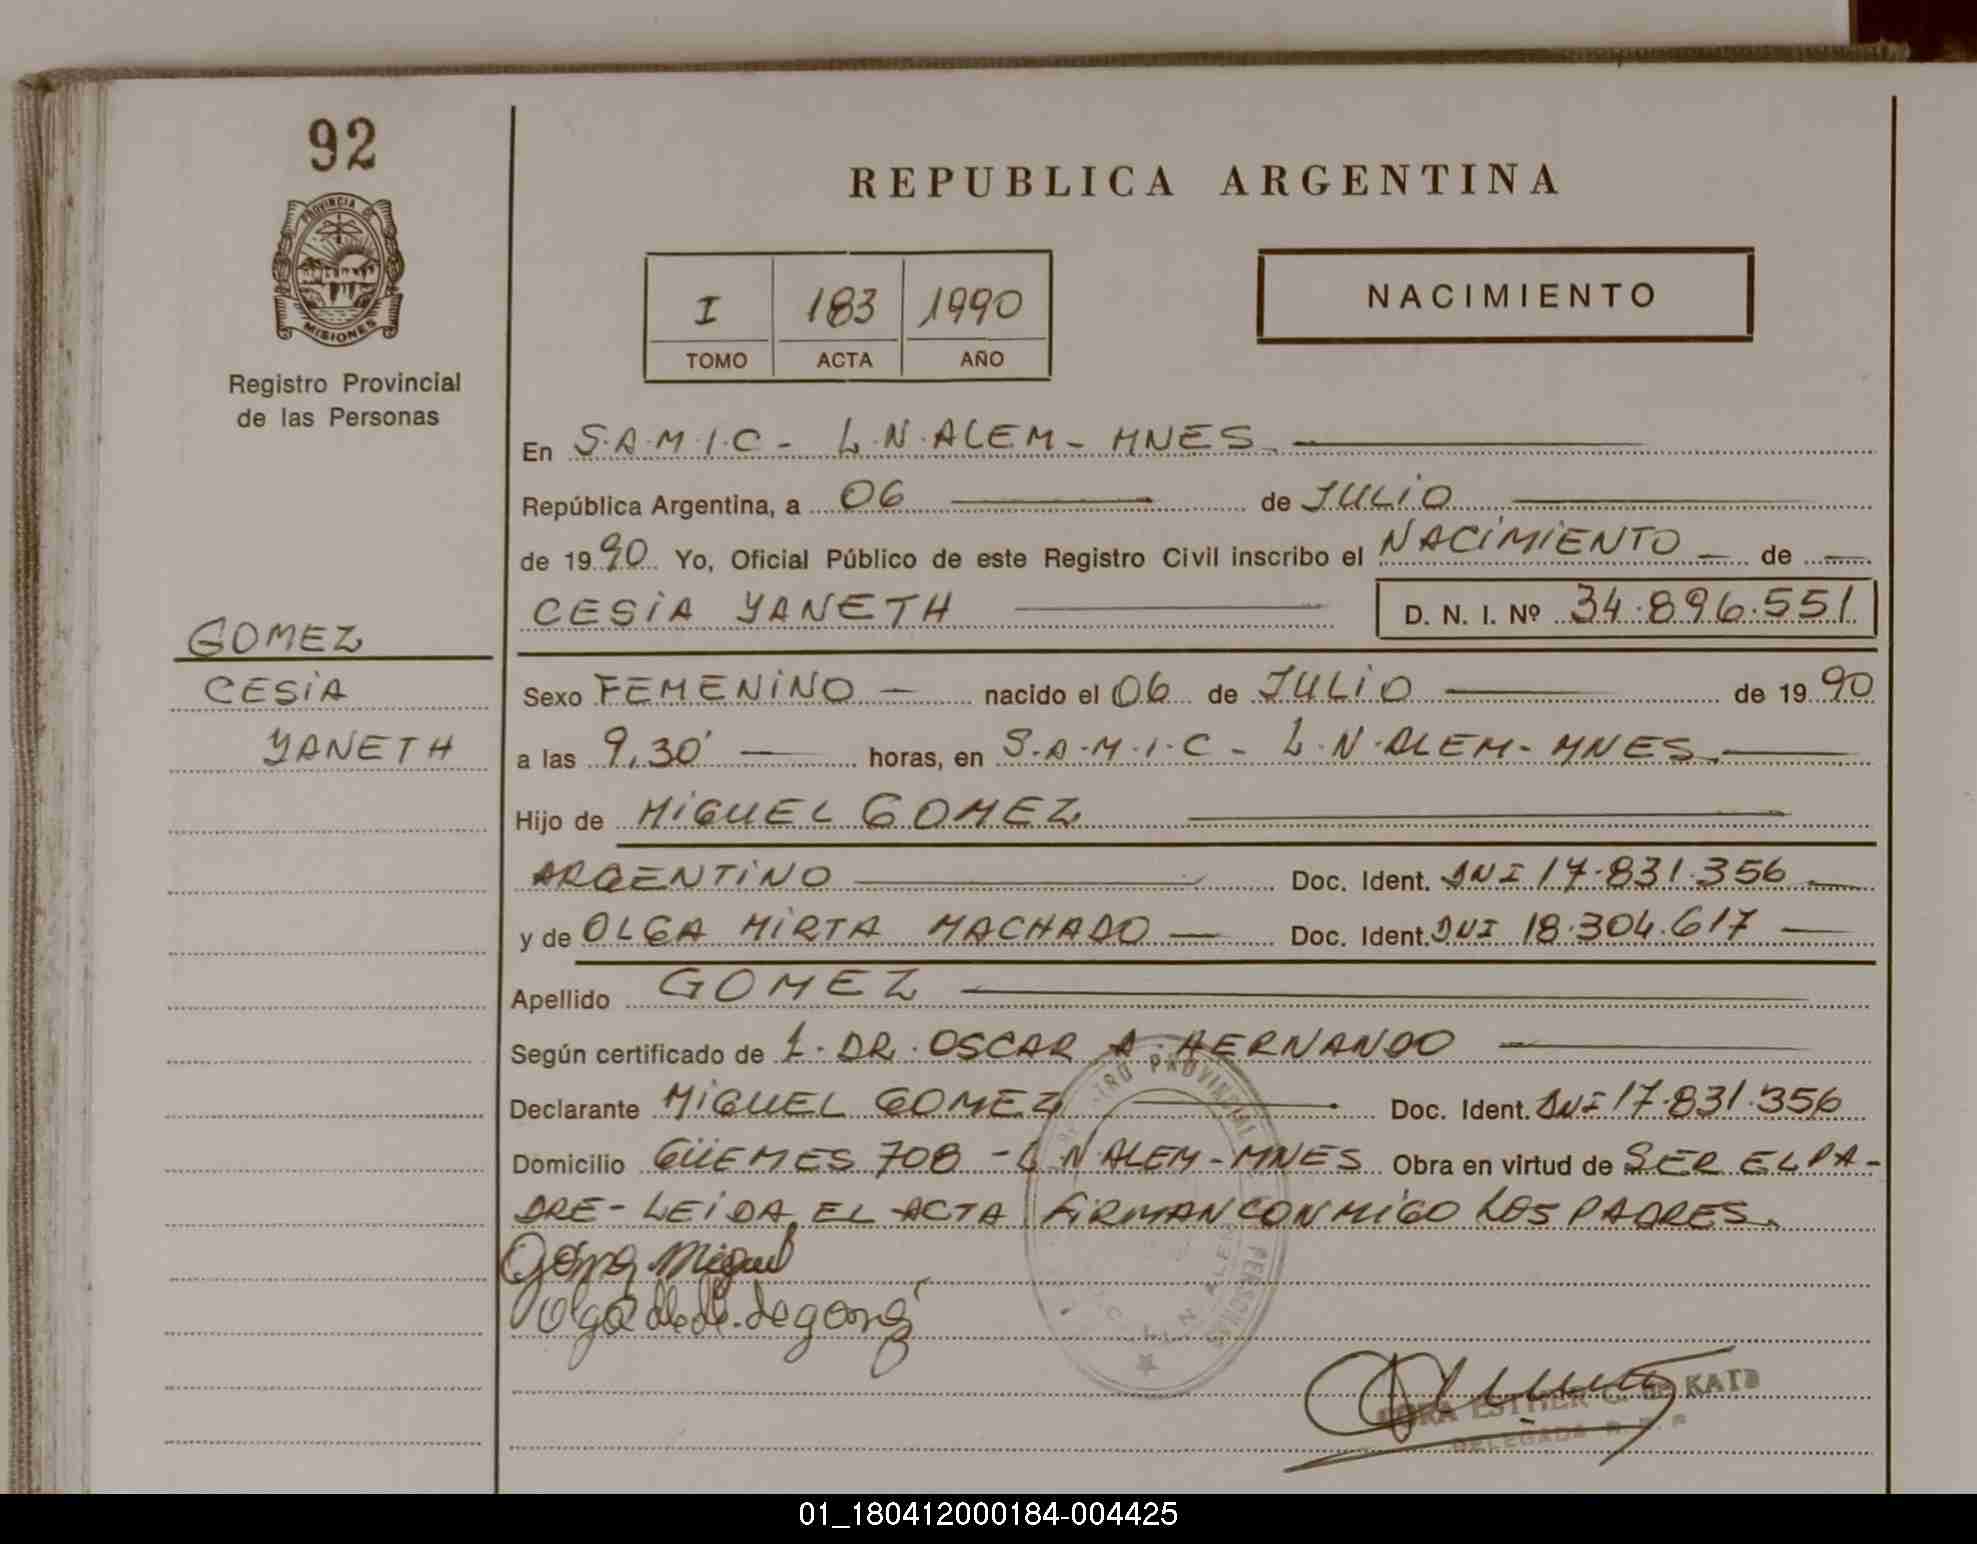 92
PROVINCIA DE
MISIONES
Registro Provincial
de las Personas
GOMEZ
CESIA
YANETH
REPUBLICA ARGENTINA
I 183 1990
TOMO ACTA AÑO
NACIMIENTO
En S.A.M.I.C - L.N.ALEM - MNES
República Argentina, a 06 de JULIO
de 1990 Yo, Oficial Público de este Registro Civil inscribo el NACIMIENTO de
CESIA YANETH D. N. I. Nº 34.896.551
Sexo FEMENINO nacido el 06 de JULIO de 1990
a las 9,30' horas, en S.A.M.I.C - L.N.ALEM - MNES
Hijo de MIGUEL GOMEZ
ARGENTINO Doc. Ident. DNI 17.831.356
y de OLGA MIRTA MACHADO Doc. Ident. DNI 18.304.617
Apellido GOMEZ
Según certificado de DR. OSCAR A. HERNANDO
Declarante MIGUEL GOMEZ Doc. Ident. DNI 17.831.356
Domicilio GÜEMES 708 - L N ALEM - MNES Obra en virtud de SER EL PA-
DRE - LEIDA EL ACTA FIRMAN CONMIGO LOS PADRES.
Miguel
Olga
PROVINCIAL
PERSONAS
L.N. ALEM
ESTHER C. de KATZ
DELEGADA
01_180412000184-004425